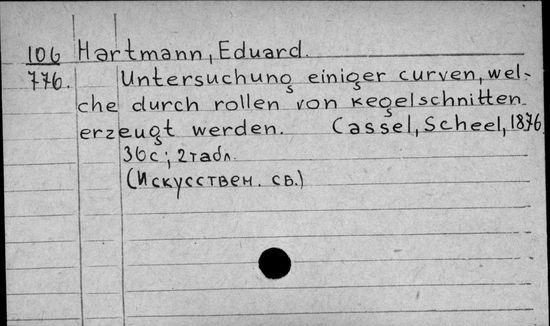 106 Hartmann, Eduard.
776. Untersuchung einiger curven, wel-
che durch rollen von kegelschnitten
erzeugt werden. Cassel, Scheel, 1876
36 с; 2 табл.
(Искусствен. св.)